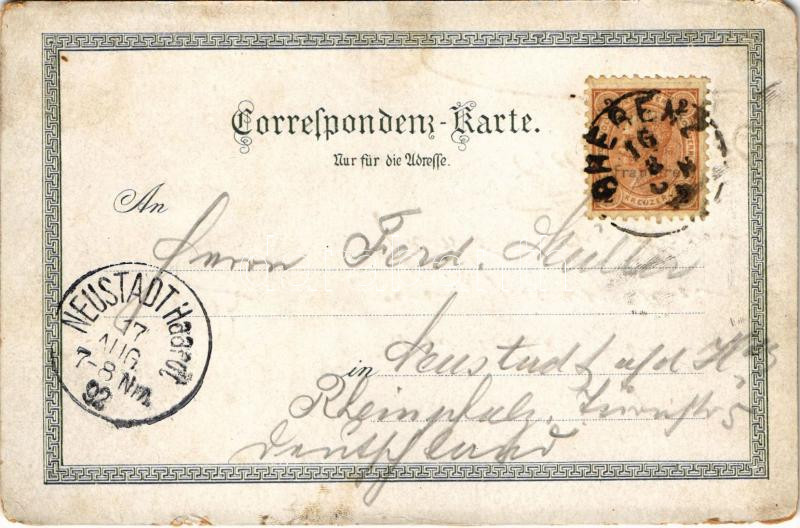 Correspondenz-Karte.
Nur für die Adresse.
BREGENZ
16
8
KREUZER
An
Herrn Ferd. Müller
NEUSTADT Haardt
17
AUG.
7-8 Nm.
92
in Neustadt a/d H
Rheinpfalz, Turnstr 5
Deutschland